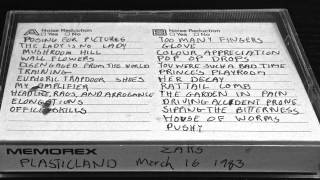 A Noise Reduction
Yes No
POSING FOR PICTURES
THE LADY IS NO LADY
MUSHROOM HILL
WALL FLOWERS
DISENGAGED FROM THE WORLD
TRAINING
EUPHORIC TRAPDOOR SHOES
MY AMPLIFIER
HEADLINE RAGS, AND ARROGANCE
ELONGATIONS
OFFICE SKILLS
B Noise Reduction
Yes No
TOO MANY FINGERS
GLOVE
COLOUR APPRECIATION
POP OP DROPS
YOU WERE SUCH A BAD TIME
PRINCE'S PLAYROOM
HER DECAY
RAT TAIL COMB
THE GARDEN IN PAIN
DRIVING ACCIDENT PRONE
SIPPING THE BITTERNESS
HOUSE OF WORMS
PUSHY
MEMOREX
PLASTICLAND
ZAKS
March 16 1983